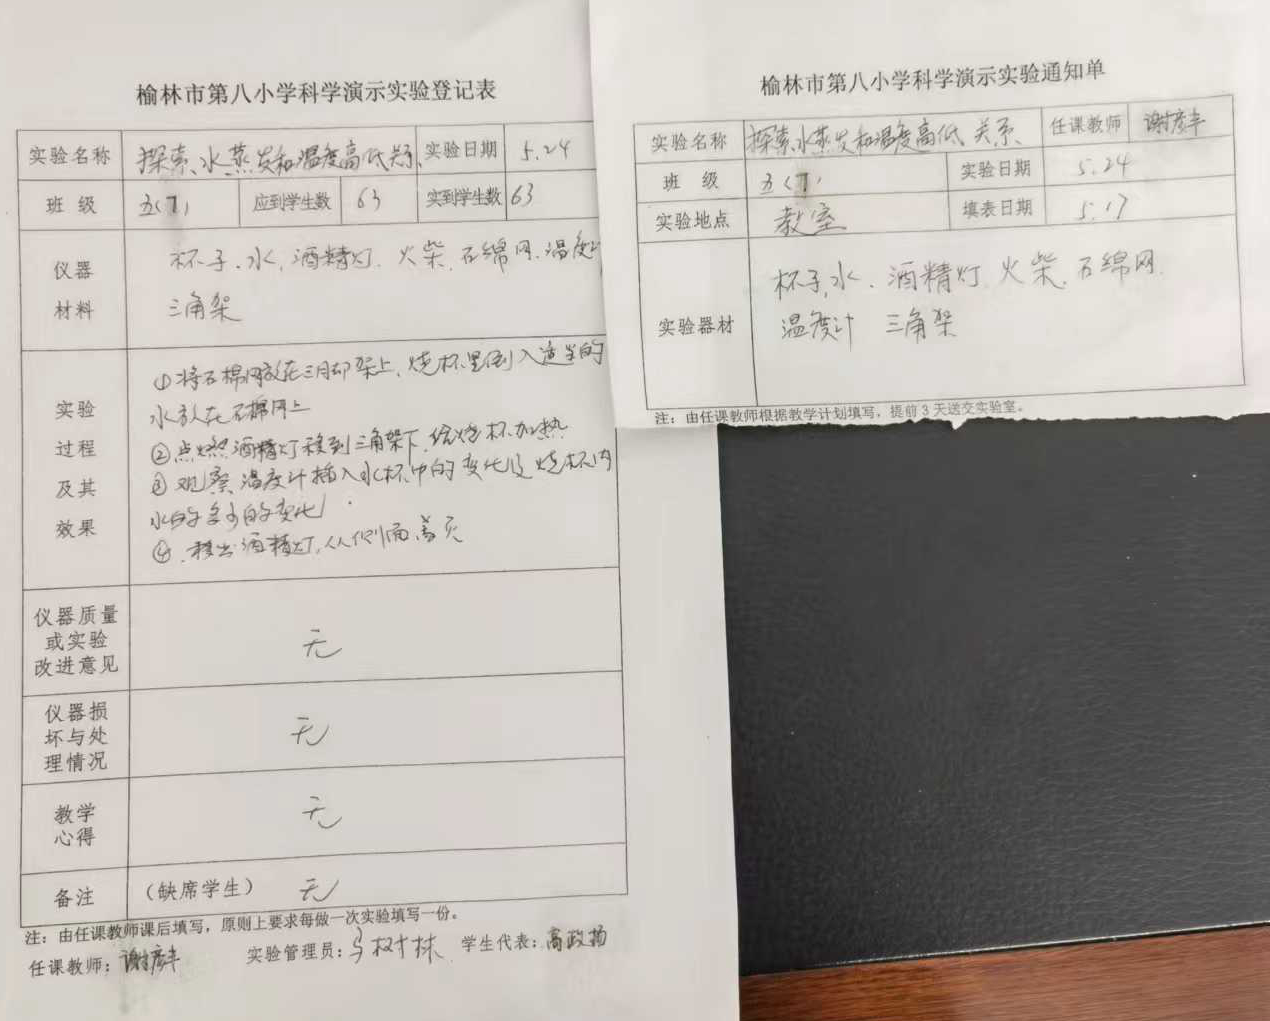 榆林市第八小学科学演示实验登记表
实验名称 探索水蒸发和温度高低关系 实验日期 5.24
班 级 五(1) 应到学生数 63 实到学生数 63
仪器
材料
杯子、水、酒精灯、火柴、石绵网、温度计
三角架
实验
过程
及其
效果
①将石棉网放在三角架上、烧杯里倒入适当的
水放在石棉网上
②点燃酒精灯移到三角架下,给烧杯加热
③观察温度计插入水杯中的变化及烧杯内
水的多少的变化
④移出酒精灯,从侧面盖灭
仪器质量
或实验
改进意见
无
仪器损
坏与处
理情况
无
教学
心得
无
备注 (缺席学生) 无
注:由任课教师课后填写,原则上要求每做一次实验填写一份。
任课教师:谢彦丰 实验管理员:树林 学生代表:高政扬
榆林市第八小学科学演示实验通知单
实验名称 探索水蒸发和温度高低关系 任课教师 谢彦丰
班 级 五(1) 实验日期 5.24
实验地点 教室 填表日期 5.17
实验器材
杯子、水、酒精灯、火柴、石绵网、
温度计 三角架
注:由任课教师根据教学计划填写,提前3天送交实验室。